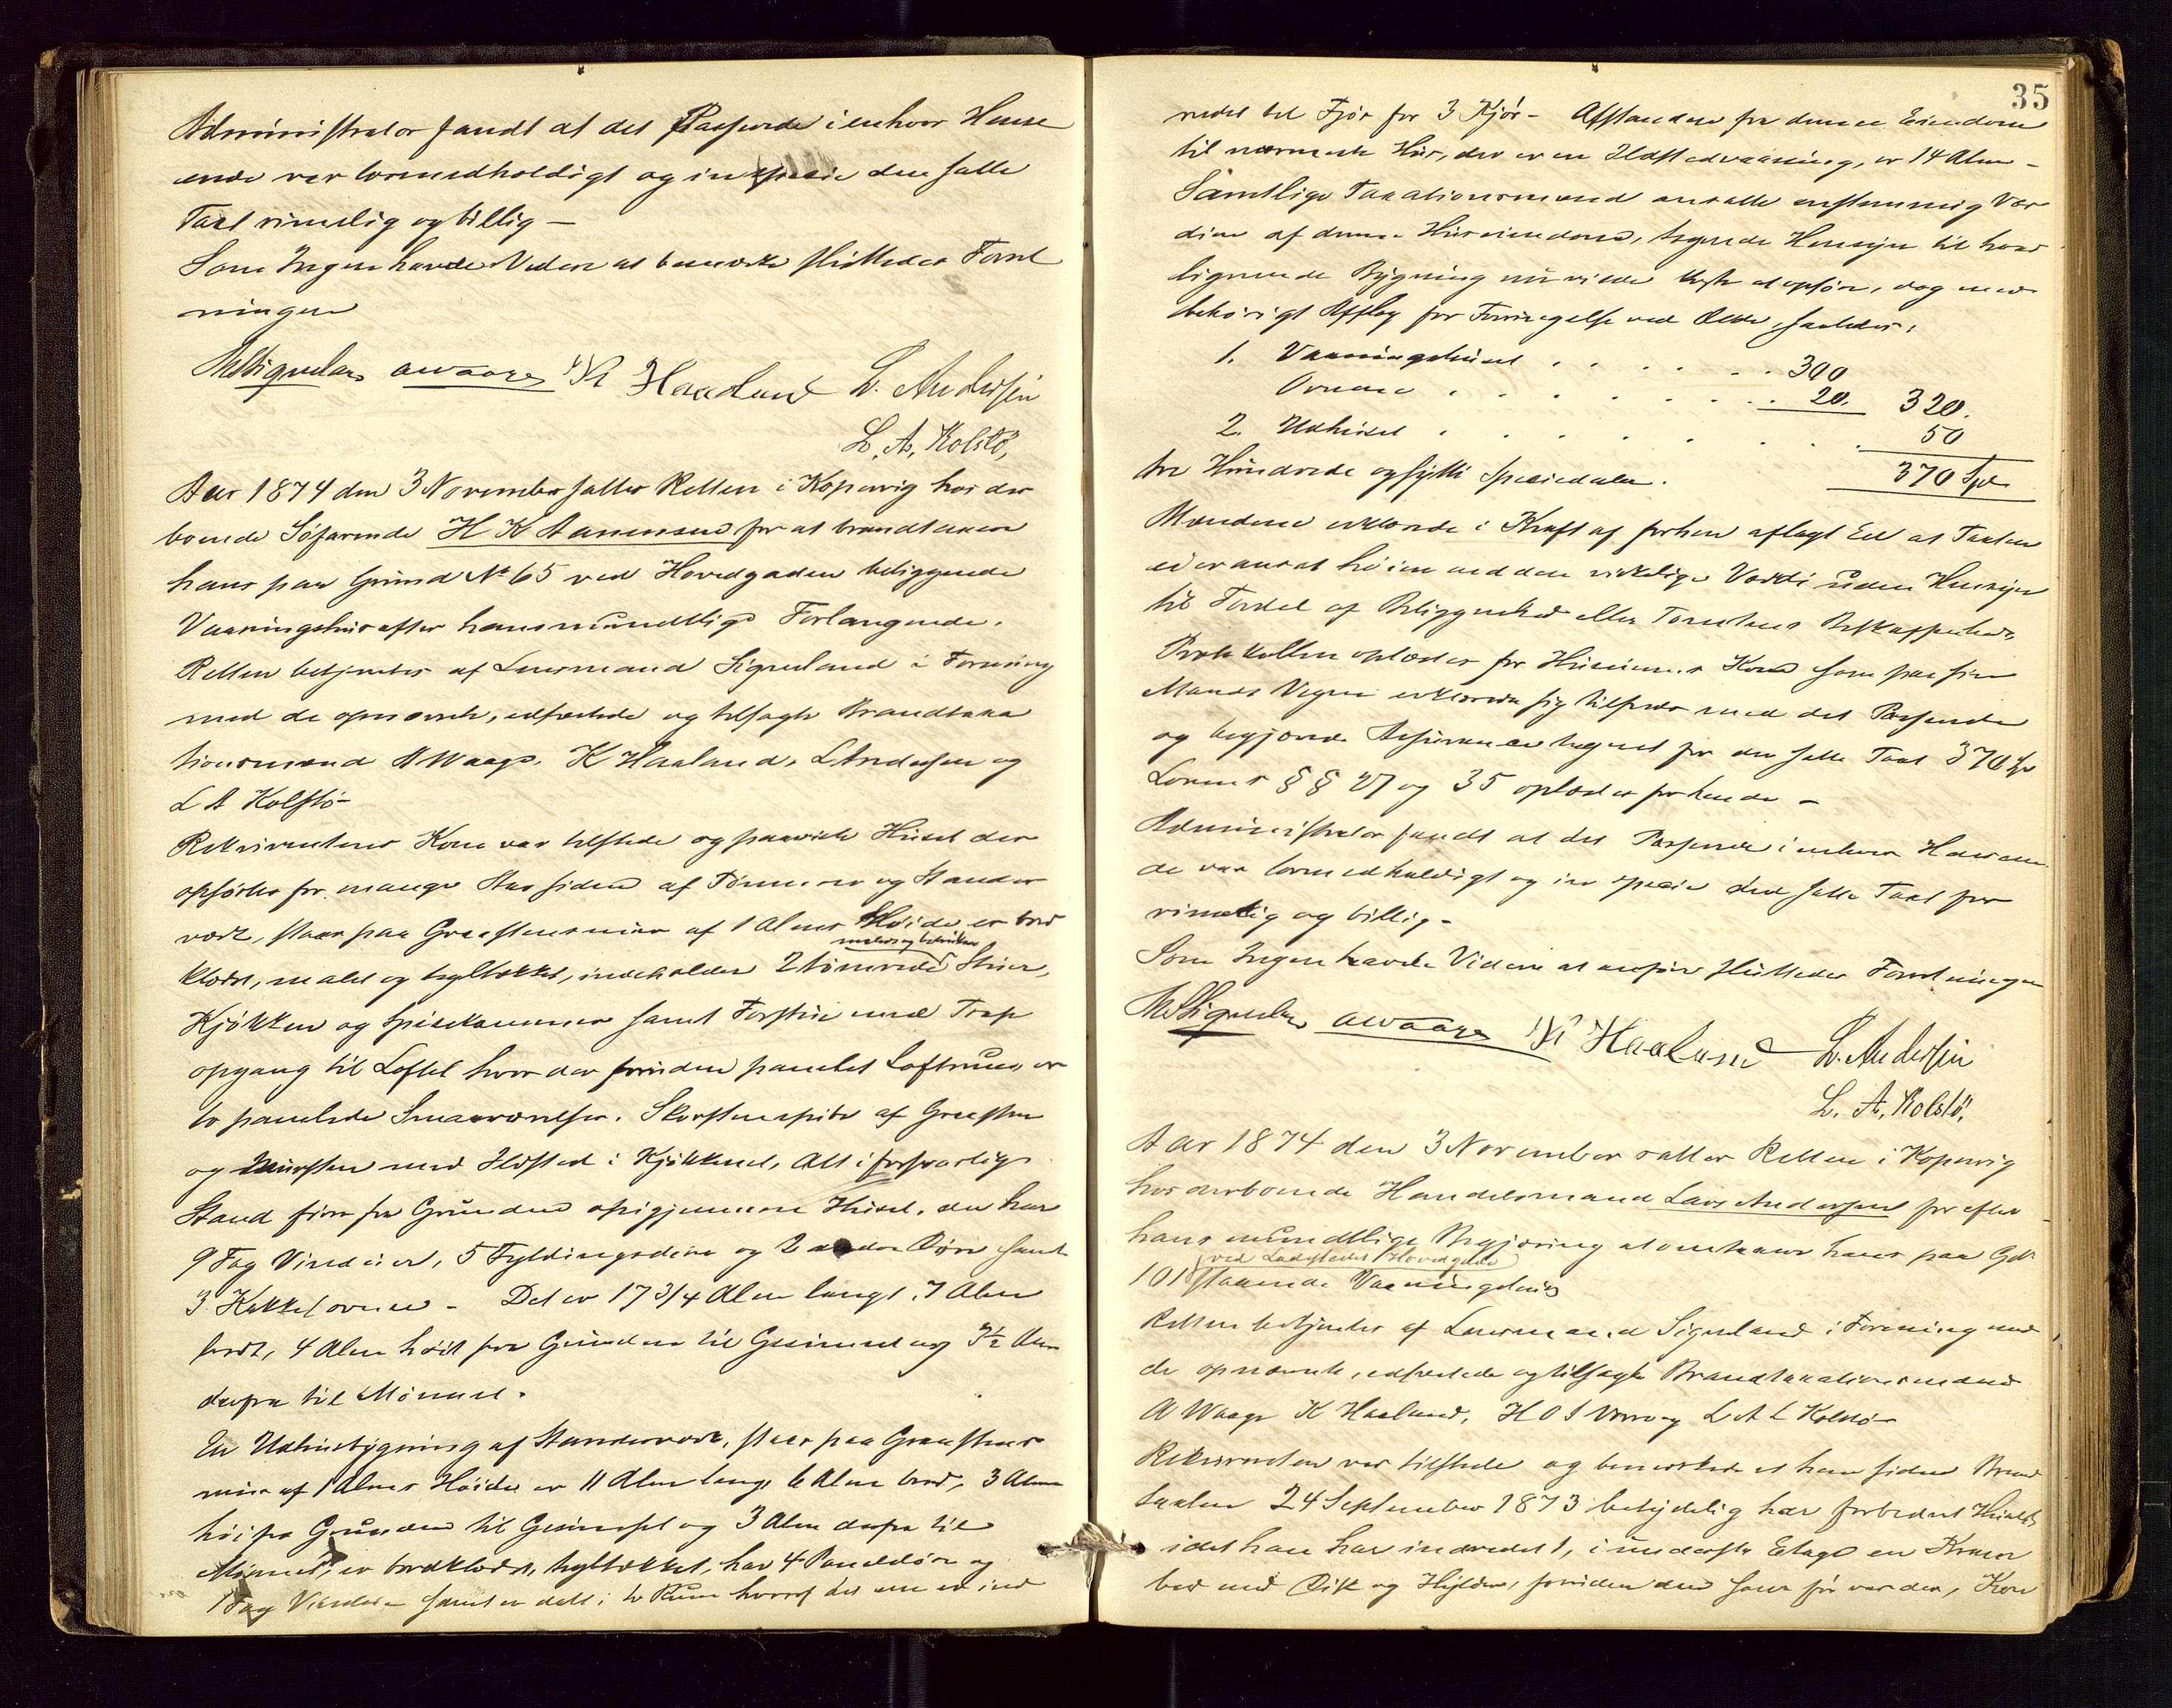 Administrator fandt at det Passerede i enhver Hense
ende var lovmedholdigt og in specie den satte
Taxt rimelig og billig –
Som Ingen havde Videre at bemærke sluttedes Forret
ningen
M Sigvaland AWaage K Haaland L. Andersen
L. A. Kolstö,
Aar 1874 den 3 November sattes Retten i Kopervig hos der
boende Söfarende H K Aanensen for at brandtaxere
hans paa Grund No 65 ved Hovedgaden beliggende
Vaaningshus efter hans mundtlige Forlangende.
Retten betjentes af Lensmand Sigvaland i Forening
med de opnævnte, edfæstede og tilsagte Brandtaxa
tionsmænd A Waage, K Haaland, L Andersen og
L A Kolstö –
Rekvirentens Kone var tilstede og paaviste Huset der
opförtes for mange Aar siden af Tömmer og Stander
værk, staar paa Graastensmur af 1 Alens Höide er bord
malede og betrukne
klædt, malet og tegltækket, indeholder 2 tömrede Stuer,
Kjökken og Spisekammer samt Forstue med Trap
opgang til Loftet hvor der foruden panelet Loftrum er
to panelede Smaaværelser. Skorstenspibe af Graasten
og Mursten med Ildsted i Kjökkenet, Alt i forsvarlig
Stand fra Grunden opigjennem Huset, der har
9 Fag Vinduer, 5 Fyldingsdöre og 2 andre Döre samt
3 Kakkelovne – Det er 17 3/4 Alen langt, 7 Alen
bredt, 4 Alen höit fra Grunden til Gesimset og 3½ Alen
derfra til Mönnet.
En Udhusbygning af Standerværk, staar paa Graastens
mur af 1 Alens Höide er 11 Alen lang 6 Alen bred, 3 Alen
höi fra Grunden til Gesimset og 3 Alen derfra til
Mönnet, er bordklædt, tegltækket, har 4 Paneldöre og
1 Fag Vinduer samt er delt i to Rum hvoraf det ene er ind
35
redet til Fjös for 3 Kjör – Afstanden fra denne Eiendom
til nærmeste Hus, der er en Ildstedvaaning, er 14 Alen –
Samtlige Taxationsmænd ansatte enstemmig Vær
dien af denne Huseiendom, tagende Hensyn til hvad
lignende Bygning nu vilde koste at opföre, dog med
behörigt Afslag for Forringelse ved Ælde, saaledes:
1. Vaaningshuset . . . . . . 300
Ovnene . . . . . . . 20. 320.
2. Udhuset . . . . . . . 50
370 Spd
tre Hundrede og sytti Speciedaler.
Mændene erklærede i Kraft af forhen aflagt Ed at Taxten
ei er ansat höiere end den virkelige Værdi uden Hensyn
til Fordel af Beliggenhed eller Tomtens Beskaffenhed.
Protokollen oplæstes for Huseierens Kone som paa sin
Mands Vegne erklærede sig tilfreds med det Passerede
og begjærede Assurance tegnet for den satte Taxt 370 Sp
Lovens §§ 27 og 35 oplæstes for hende –
Administrator fandt at det Passerede i enhver Henseen
de var lovmedholdigt og in specie den satte Taxt for
rimelig og billig –
Som Ingen havde Videre at anföre sluttedes Forretningen
M Sigvaland AWaage K Haaland L. Andersen
L. A. Kolstö,
Aar 1874 den 3 November sattes Retten i Kopervig
hos derboende Handelsmand Lars Andersen for efter
hans mundtlige Begjæring at omtaxere hans paa Gd
ved Ladestedets Hovedgade
101 staaende Vaaningshus
Retten betjentes af Lensmand Sigvaland i Forening med
de opnævnte, edfæstede og tilsagte Brandtaxationsmænd
A Waage K Haaland, H O og L A Kolstö –
Rekvirenten var tilstede og bemærkede at han siden Brand
taxten 24 September 1873 betydelig har forbedret Huset
idet han har indredet, i underste Etage en Kram
bod med Disk og Hylder, foruden den som för var der, Kon